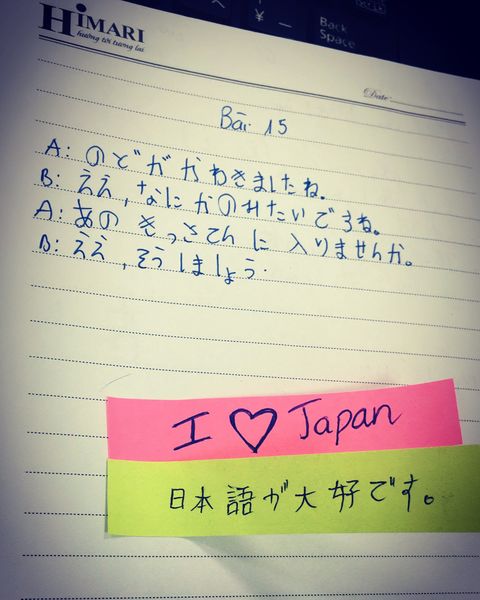 ¥
—
Back
Space
HIMARI
hướng tới tương lai
Date:
Bài 15
A: のどがかわきましたね。
B: ええ, なにかのみたいですね。
A: あの きっさてん に 入りませんか。
B: ええ, そうしましょう.
I ♡ Japan
日本語が大好です。